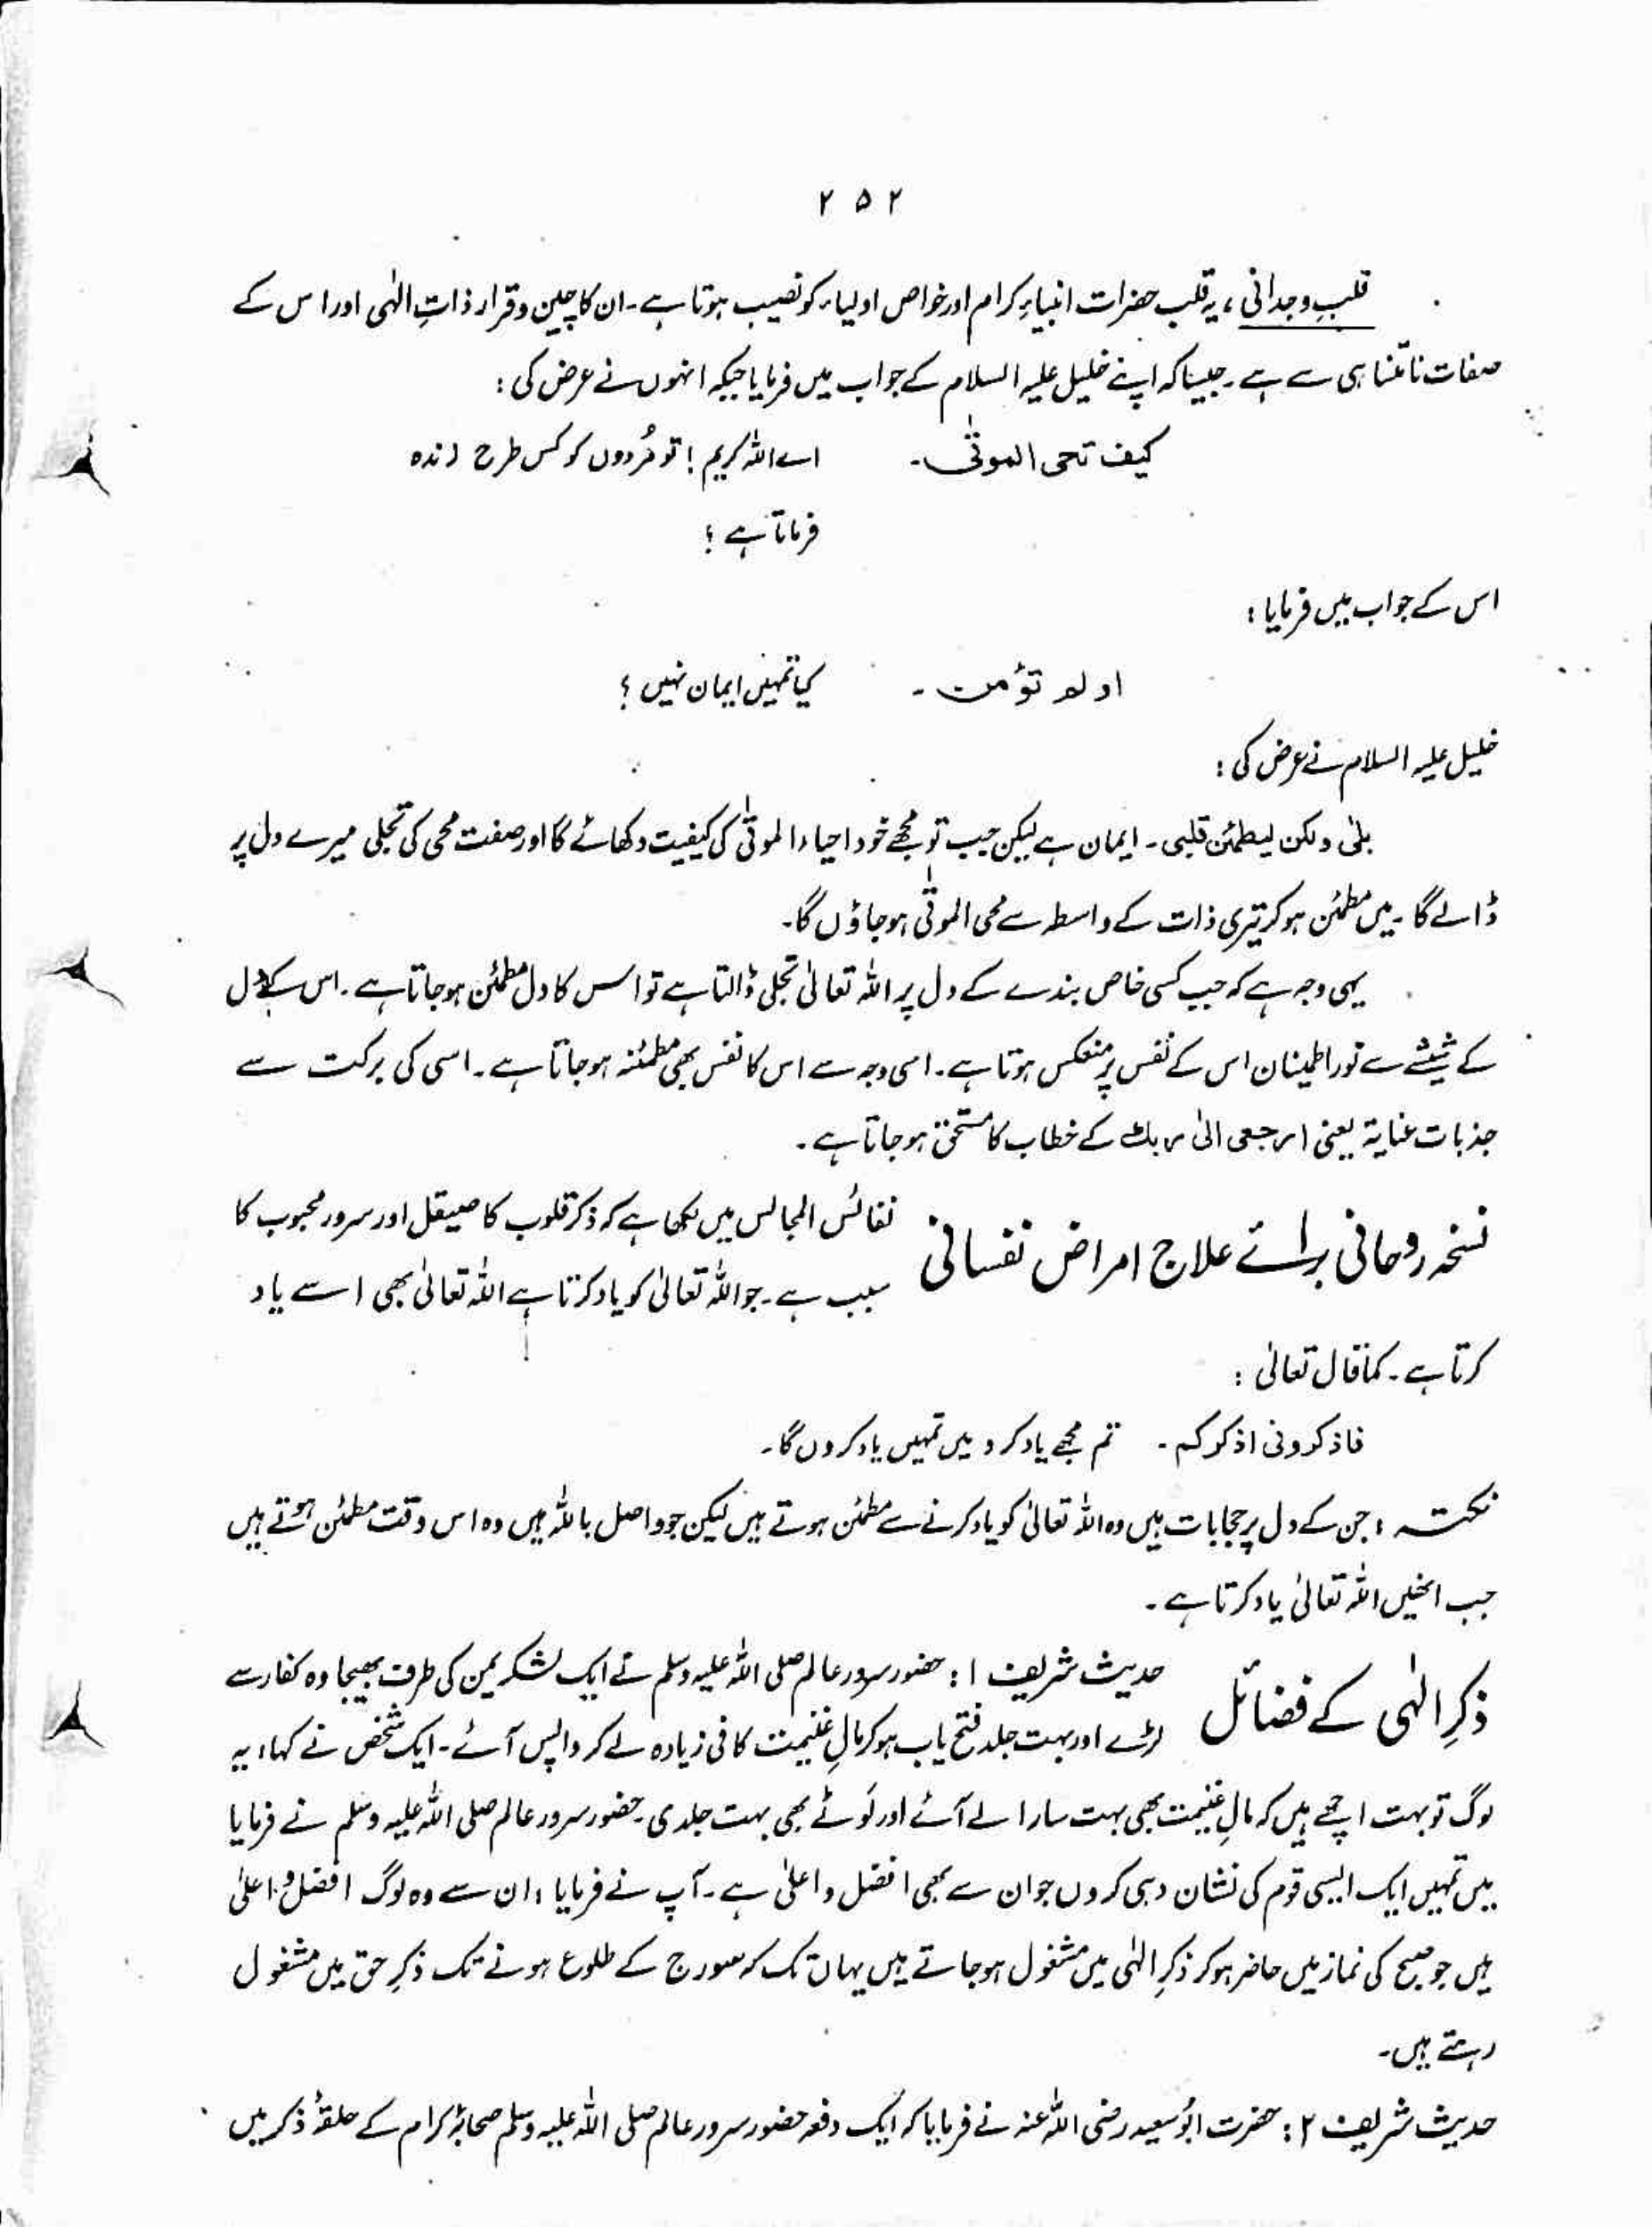 ۲۵۲
قلبِ وجدانی ، یہ قلب حضرات انبیاءِ کرام اور خواص اولیاء کو نصیب ہوتا ہے ۔ ان کا چین و قرار ذاتِ الٰہی اور اس کے
صفات نامتناہی سے ہے ۔ جیسا کہ اپنے خلیل علیہ السلام کے جواب میں فرمایا جبکہ انہوں نے عرض کی :
کیف تحی الموتٰی ۔ اے اللہ کریم ! تو مُردوں کو کس طرح زندہ
فرماتا ہے ؟
اس کے جواب میں فرمایا :
او لم تؤمن ۔ کیا تمہیں ایمان نہیں ؟
خلیل علیہ السلام نے عرض کی :
بلٰی ولکن لیطمئن قلبی ۔ ایمان ہے لیکن جب تو مجھے خود احیاء الموتٰی کی کیفیت دکھائے گا اور صفت محی کی تجلی میرے دل پر
ڈالے گا ۔ میں مطمئن ہو کر تیری ذات کے واسطہ سے محی الموتٰی ہو جاؤں گا ۔
یہی وجہ ہے کہ جب کسی خاص بندے کے دل پر اللہ تعالیٰ تجلی ڈالتا ہے تو اس کا دل مطمئن ہو جاتا ہے ۔ اس کے دل
کے شیشے سے نور اطمینان اس کے نفس پر منعکس ہوتا ہے ۔ اسی وجہ سے اس کا نفس بھی مطمئنہ ہو جاتا ہے ۔ اسی کی برکت سے
جذبات عنایۃ یعنی ارجعی الیٰ ربك کے خطاب کا مستحق ہو جاتا ہے ۔
نسخہ روحانی برائے علاج امراض نفسانی
نفائس المجالس میں لکھا ہے کہ ذکر قلوب کا صیقل اور سرور محبوب کا
سبب ہے ۔ جو اللہ تعالیٰ کو یاد کرتا ہے اللہ تعالیٰ بھی اسے یاد
کرتا ہے ۔ کما قال تعالیٰ :
فاذکرونی اذکرکم ۔ تم مجھے یاد کرو میں تمہیں یاد کروں گا ۔
نکتہ : جن کے دل پر حجابات ہیں وہ اللہ تعالیٰ کو یاد کرنے سے مطمئن ہوتے ہیں لیکن جو واصل باللہ ہیں وہ اس وقت مطمئن ہوتے ہیں
جب انھیں اللہ تعالیٰ یاد کرتا ہے ۔
ذکرِ الٰہی کے فضائل
حدیث شریف ۱ : حضور سرور عالم صلی اللہ علیہ وسلم نے ایک لشکر یمن کی طرف بھیجا وہ کفار سے
لڑے اور بہت جلد فتح یاب ہو کر مالِ غنیمت کافی زیادہ لے کر واپس آئے ۔ ایک شخص نے کہا ، یہ
لوگ تو بہت اچھے ہیں کہ مالِ غنیمت بھی بہت سارا لے آئے اور لَوٹے بھی بہت جلدی ۔ حضور سرور عالم صلی اللہ علیہ وسلم نے فرمایا
میں تمہیں ایک ایسی قوم کی نشان دہی کروں جو ان سے بھی افضل و اعلیٰ ہے ۔ آپ نے فرمایا ، ان سے وہ لوگ افضل و اعلیٰ
ہیں جو صبح کی نماز میں حاضر ہو کر ذکرِ الٰہی میں مشغول ہو جاتے ہیں یہاں تک کہ سورج کے طلوع ہونے تک ذکرِ حق میں مشغول
رہتے ہیں ۔
حدیث شریف ۲ : حضرت ابُو سعید رضی اللہ عنہ نے فرمایا کہ ایک دفعہ حضور سرور عالم صلی اللہ علیہ وسلم صحابۂ کرام کے حلقۂ ذکر میں